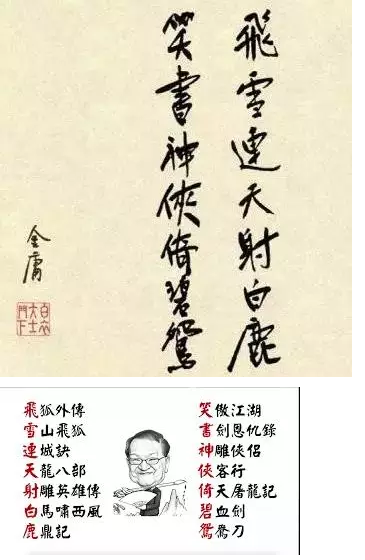 飛雪連天射白鹿
笑書神俠倚碧鴛
金庸
白衣大士門下
飛狐外傳
雪山飛狐
連城訣
天龍八部
射雕英雄傳
白馬嘯西風
鹿鼎記
笑傲江湖
書劍恩仇錄
神雕俠侶
俠客行
倚天屠龍記
碧血劍
鴛鴦刀